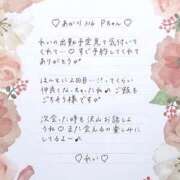 ♡あかり 7/4 Pちゃん♡
れいの出勤予定見て気付いてくれて…
すぐ予約してくれて
ありがとう
ほんとに2回目…?ってくらい
仲良くなっちゃったね♪ ご飯も
ごちそう様です
次会った時も沢山お話しよ
うね♡また会えるの楽しみに
してるよ〜♪
♡れい♡